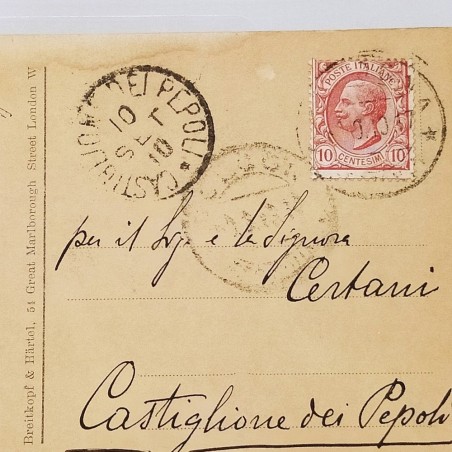 CASTIGLIONE DEI PEPOLI
10
SET
10
POSTE ITALIANE
10 CENTESIMI 10
per il Sig. e la Signora
Certani
Castiglione dei Pepoli
Breitkopf & Härtel, 54 Great Marlborough Street London W